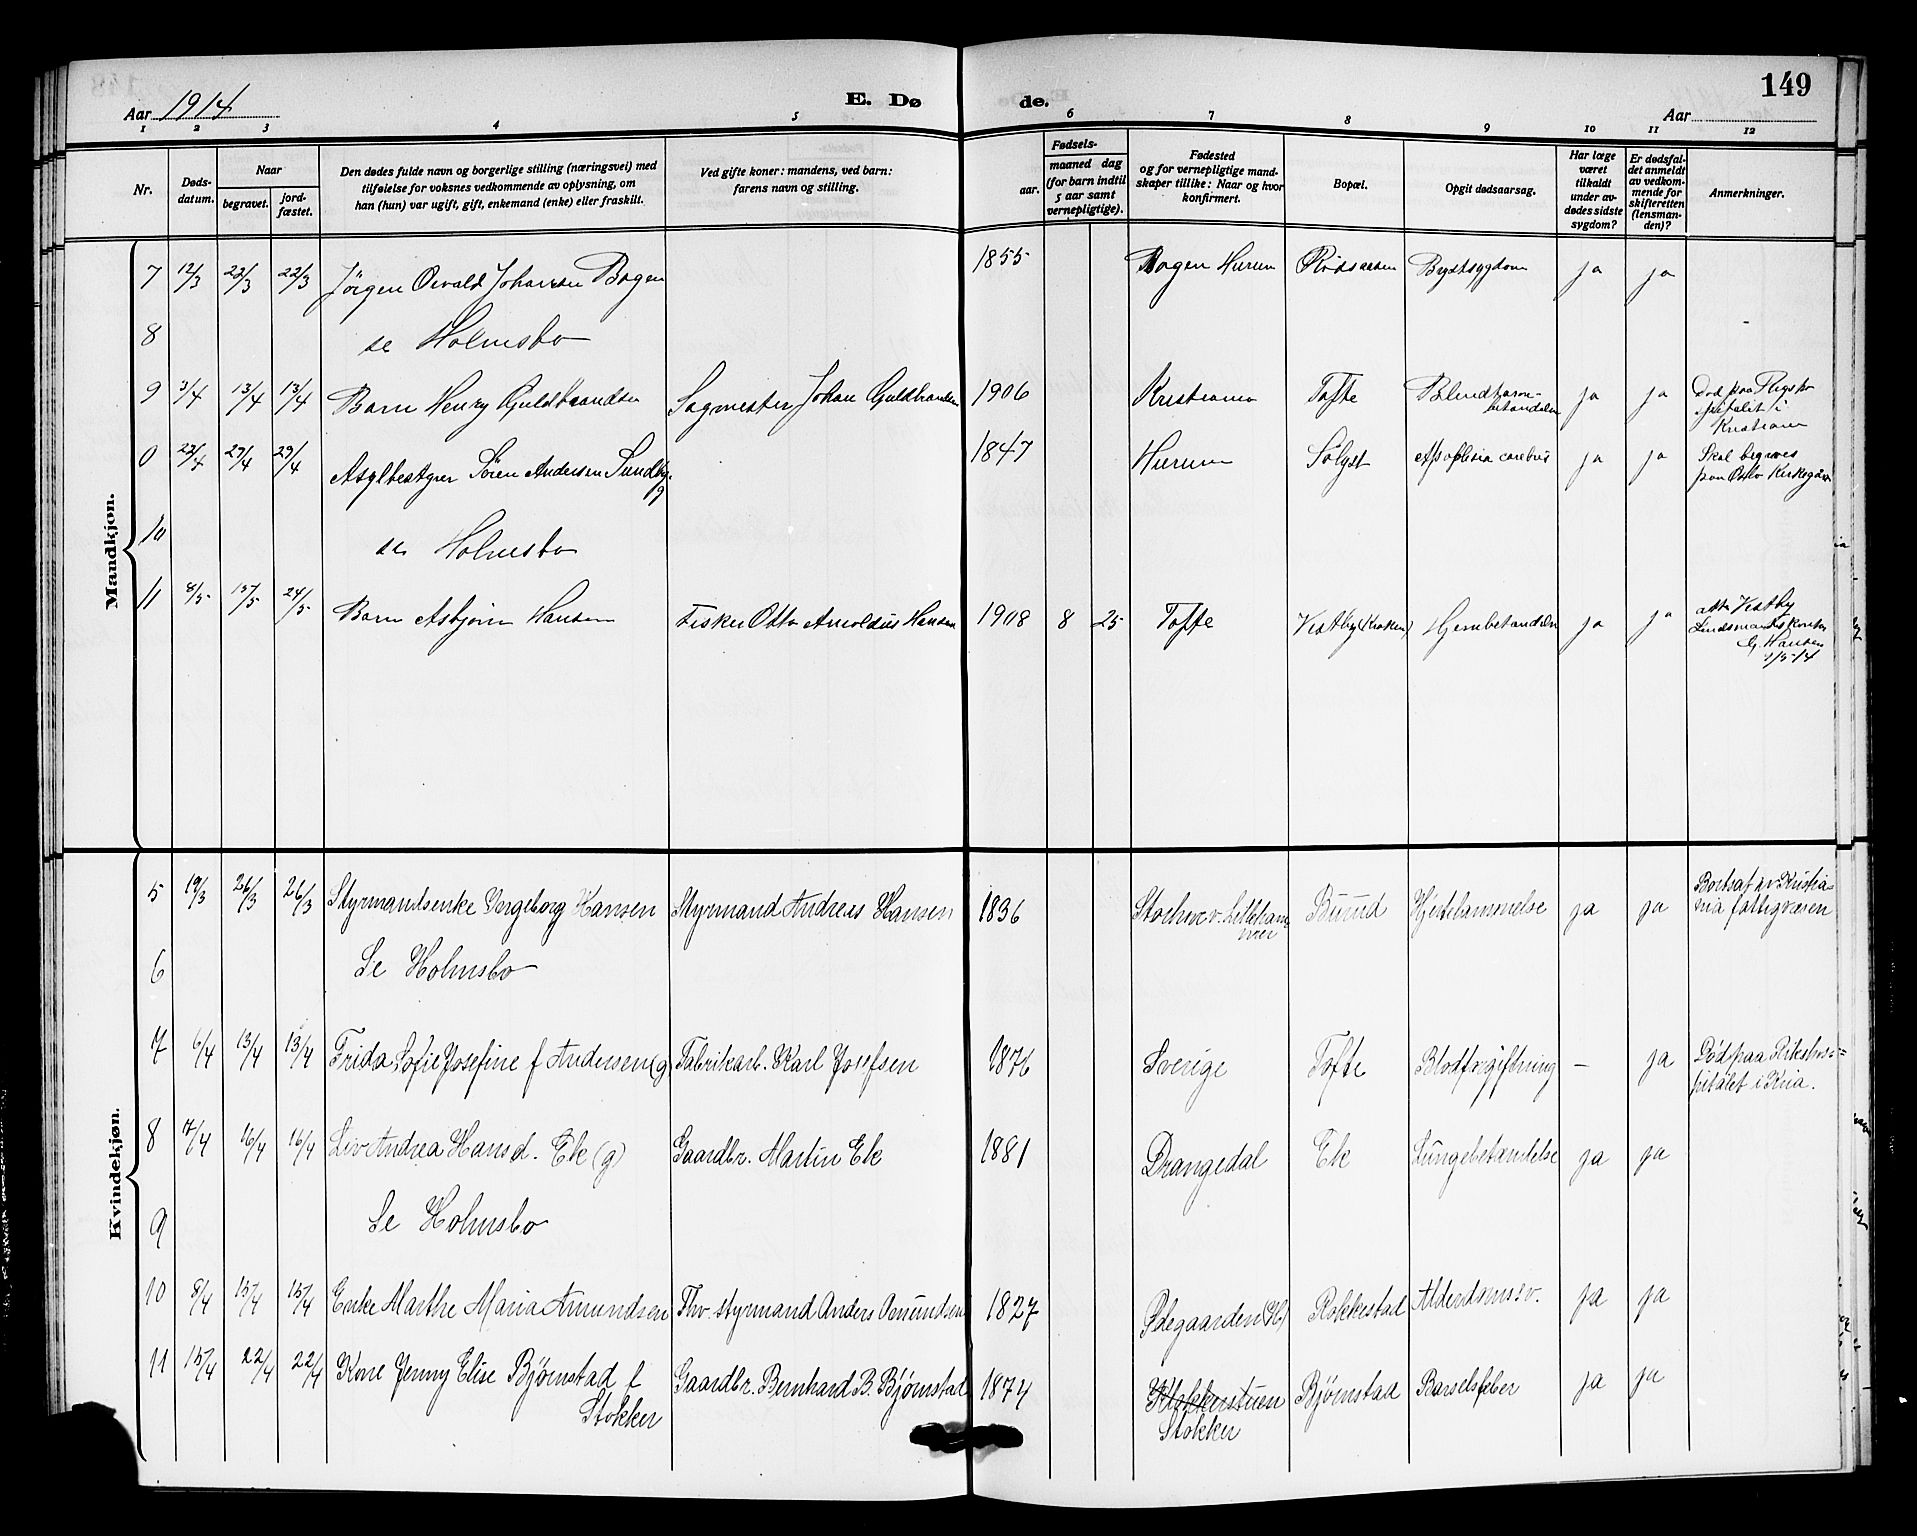 149
Aar 1914
E. Dø
de.
Aar
1 2 3 4 5 6 7 8 9 10 11 12
Nr.
Døds-
datum.
Naar
begravet.
jord-
fæstet.
Den dødes fulde navn og borgerlige stilling (næringsvei) med
tilføielse for voksnes vedkommende av oplysning, om
han (hun) var ugift, gift, enkemand (enke) eller fraskilt.
Ved gifte koner: mandens, ved barn:
farens navn og stilling.
Fødsels-
aar.
maaned dag
(for barn indtil
5 aar samt
vernepligtige).
Fødested
og for vernepligtige mand-
skaper tillike: Naar og hvor
konfirmert.
Bopæl.
Opgit dødsaarsag.
Har læge
været
tilkaldt
under av-
dødes sidste
sygdom?
Er dødsfal-
det anmeldt
av vedkom-
mende for
skifteretten
(lensman-
den)?
Anmerkninger.
Mandkjøn.
7 12/3 22/3 22/3 Jørgen Osvald Johansen Bogen 1855 Bogen Hurum Rødsaasen Brystsygdom ja ja
8 se Holmsbo
9 3/4 13/4 13/4 Barn Henry Guldbrandsen Sagmester Johan Guldbrandsen 1906 Kristiania Tofte Blindtarm-
betændelse ja ja Død paa Rigsho
spitalet i
Kristiania
0 22/4 29/4 29/4 Asylbestyrer Søren Andersen Sundby 1847 Hurum Sølyst Apoplexia cerebri ja ja Skal begraves
paa Oslo Kirkegård
g
10 se Holmsbo
11 8/5 15/5 24/5 Barn Asbjørn Hansen Fisker Otto Arnoldus Hansen 1908 8 25 Tofte Vestby (Kroken) Hjernbetændelse ja ja att. Vestby
Lendsmandskontor
G. Hansen
Kvindekjøn.
5 19/3 26/3 26/3 Styrmandsenke Ingeborg Hansen Styrmand Andreas Hansen 1836 Storhove v. Lilleham
mer Burud Hjertelammelse ja ja Bortsat av Kristia-
nia fattigvæsen
6 Se Holmsbo
7 6/4 13/4 13/4 Frida Sofie Josefine f Andersen (g) Fabrikarb. Karl Josefsen 1876 Sverige Tofte Blodforgiftning — ja Død paa Rikshos-
pitalet i Kria.
8 7/4 16/4 16/4 Liv Andrea Hansd. Ek (g) Gaardbr. Martin Ek 1881 Drangedal Ek Lungebetændelse ja ja
9 Se Holmsbo
10 8/4 15/4 15/4 Enke Marthe Maria Amundsen Fhv. styrmand Anders Amundsen 1827 Ødegaarden (H) Rokkestad Alderdomssv. ja ja
11 15/4 22/4 22/4 Kone Jenny Elise Bjørnstad f
Stokker Gaardbr. Bernhard B. Bjørnstad 1874 Klokkerstuen
Stokker Bjørnstad Barselsfeber ja ja